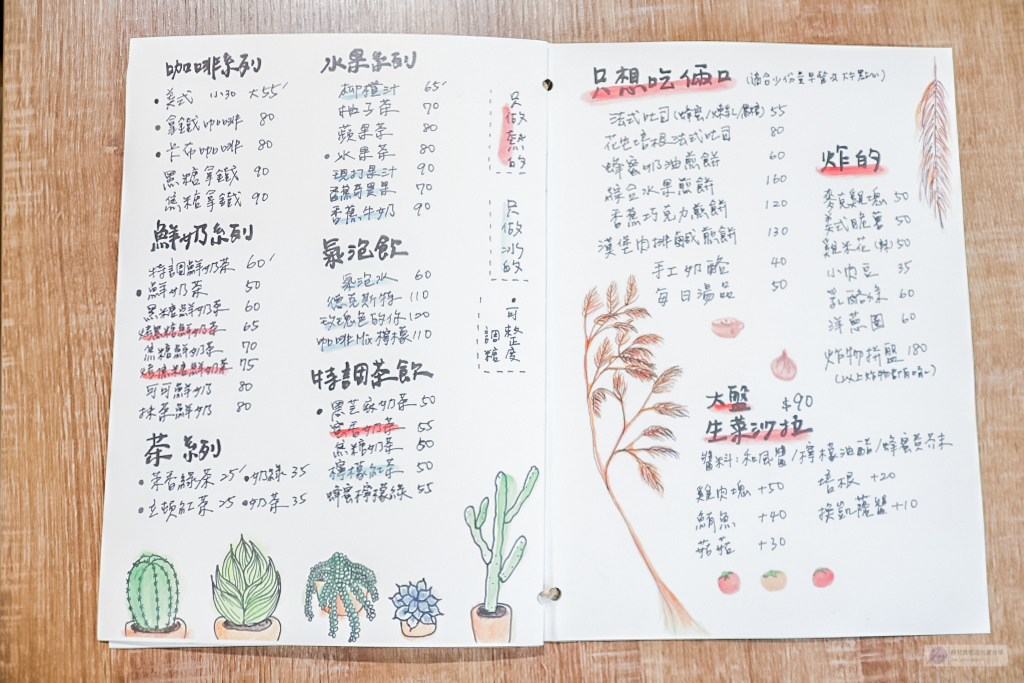 咖啡系列
•美式 小30 大55'
•拿鐵咖啡 80
•卡布咖啡 80
黑糖拿鐵 90
焦糖拿鐵 90
鮮奶系列
特調鮮奶茶 60'
•鮮奶茶 50
黑糖鮮奶茶 60
65
焦糖鮮奶茶 70
焦糖鮮奶茶 75
可可鮮奶 80
抹茶鮮奶 80
茶系列
•茉香綠茶 25' •奶綠 35
•立頓紅茶 25 •奶茶 35
水果系列
柳橙汁 65'
柚子茶 70
蘋果茶 80
•水果茶 80
現打果汁 90
香蕉奇異果 70
香蕉牛奶 90
氣泡飲
氣泡水 60
德克斯特 110
玫瑰色的你 120
咖啡Mix檸檬 110
特調茶飲
•黑芝麻奶茶 50
蜜香奶茶 55
焦糖奶茶 50
檸檬紅茶 50
蜂蜜檸檬綠 55
只做熱的
只做冰的
•可調整糖度
只想吃倆口 (適合少份量早餐及大點心)
法式吐司 55
花生培根法式吐司 80
蜂蜜奶油煎餅 60
綜合水果煎餅 160
香蕉巧克力煎餅 120
漢堡肉排鹹煎餅 130
手工奶酪 40
每日湯品 50
炸的
麥克雞塊 50
美式脆薯 50
雞米花 50
小肉豆 35
乳酪條 60
洋蔥圈 60
炸物拼盤 180
大盤 $90
生菜沙拉
醬料:和風醬/檸檬油醋/蜂蜜黃芥末
雞肉塊 +50
鮪魚 +40
菇菇 +30
培根 +20
換凱薩醬 +10